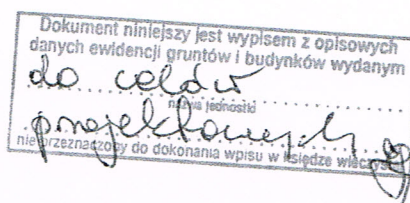 Dokument niniejszy jest wypisem z opisowych
danych ewidencji gruntów i budynków wydanym
do celów
nazwa jednostki
projektowych
nieprzeznaczony do dokonania wpisu w księdze wieczystej